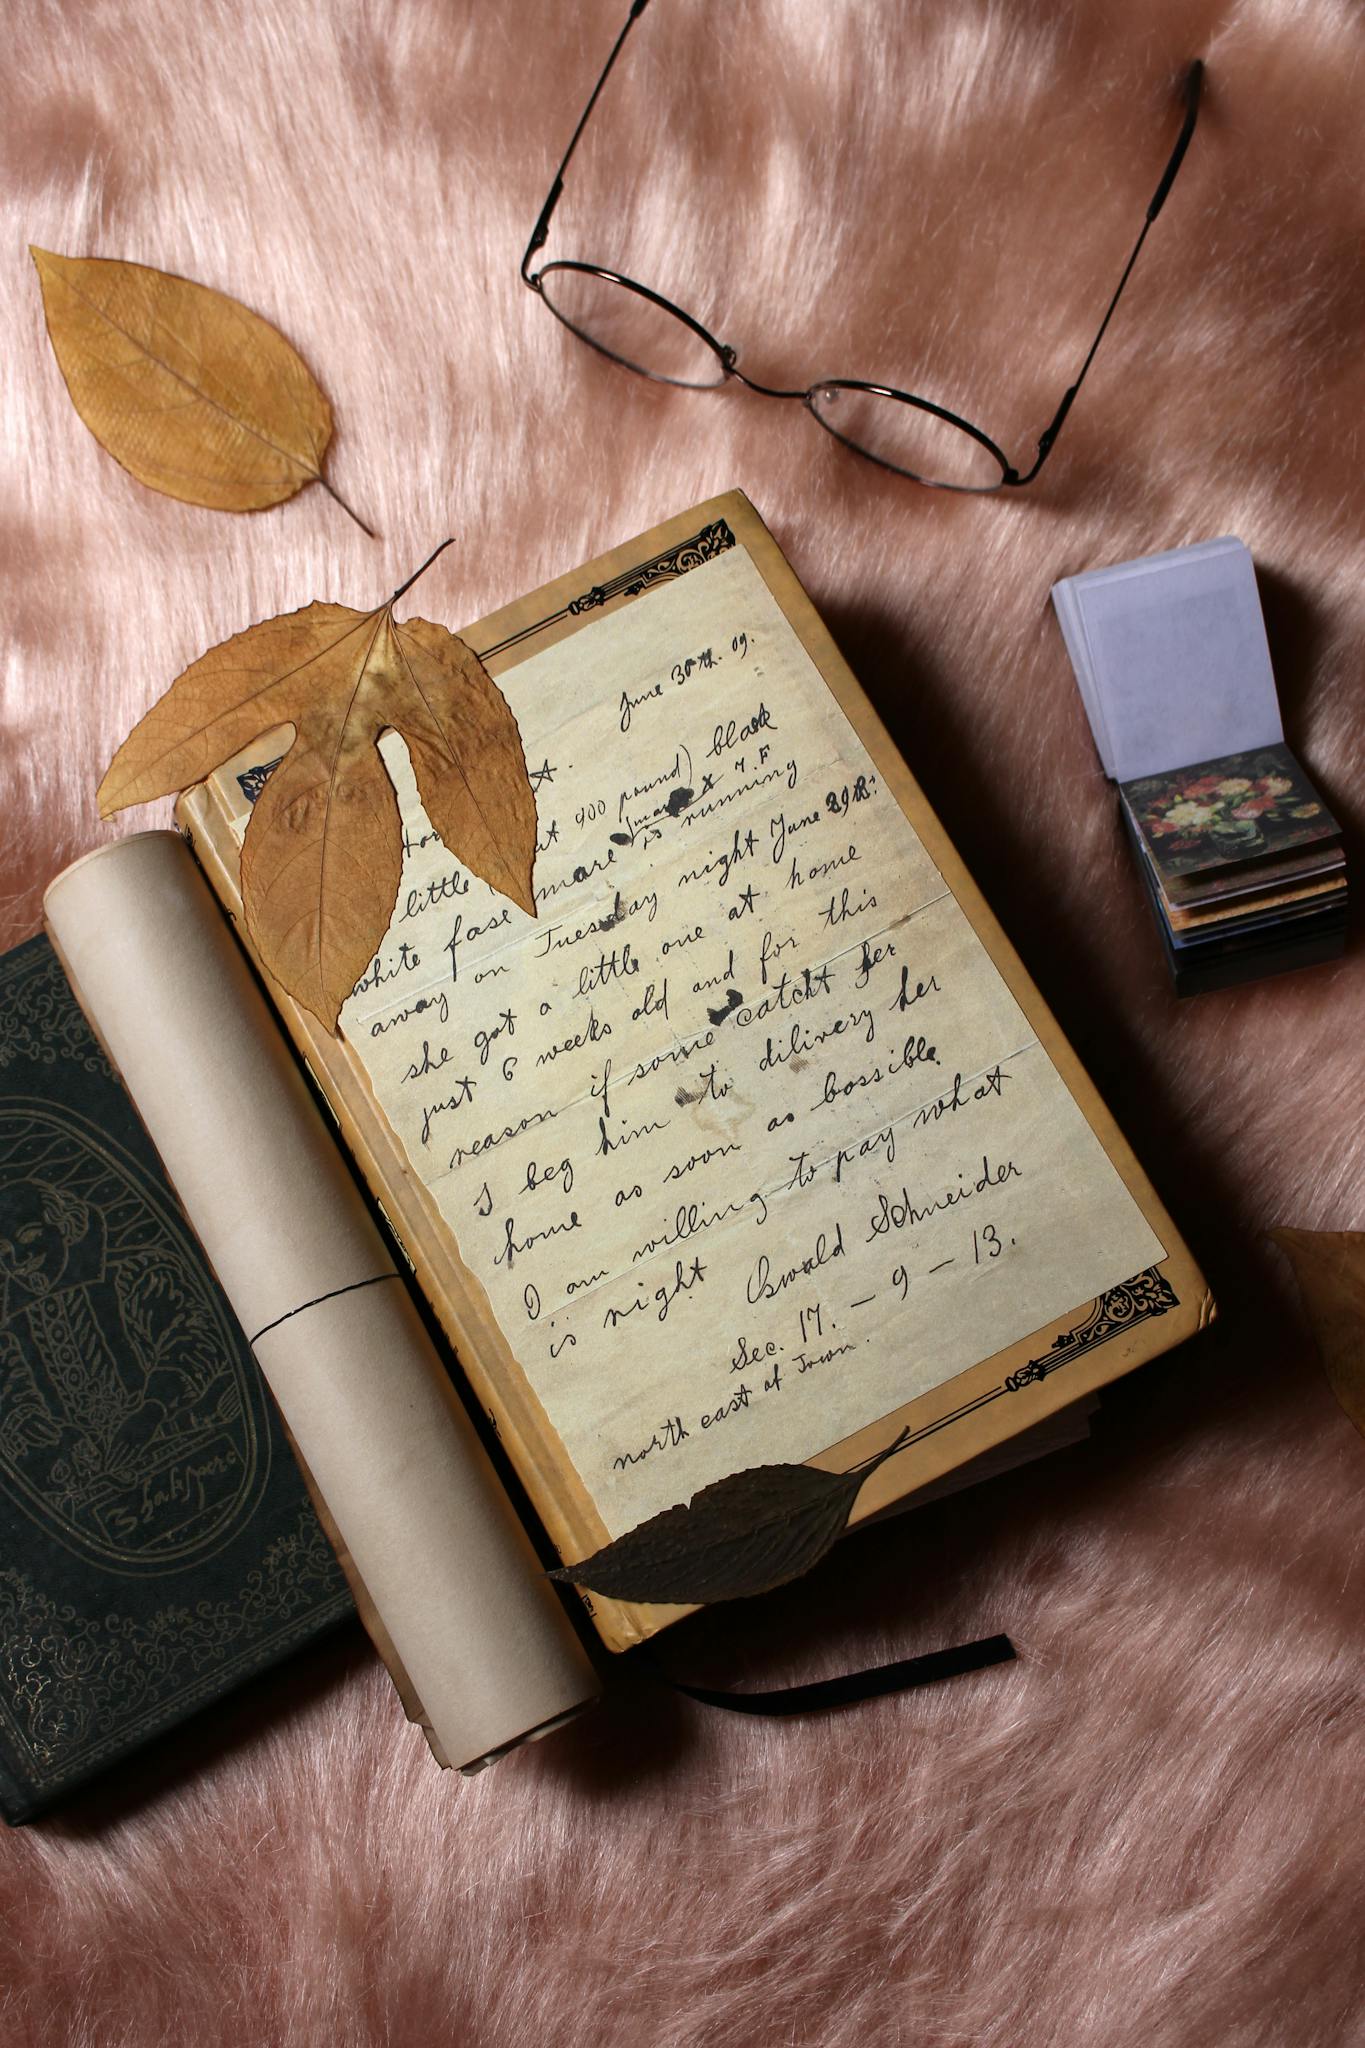 June 30th. 09.
400 pound) black
little
white fase mare is running
away on Tuesday night June 29th.
she got a little one at home
just 6 weeks old and for this
reason if some catcht her
I beg him to dilivery her
home as soon as bossible.
I am willing to pay what
is right Oswald Schneider
Sec. 17. – 9 – 13.
north east of Town.